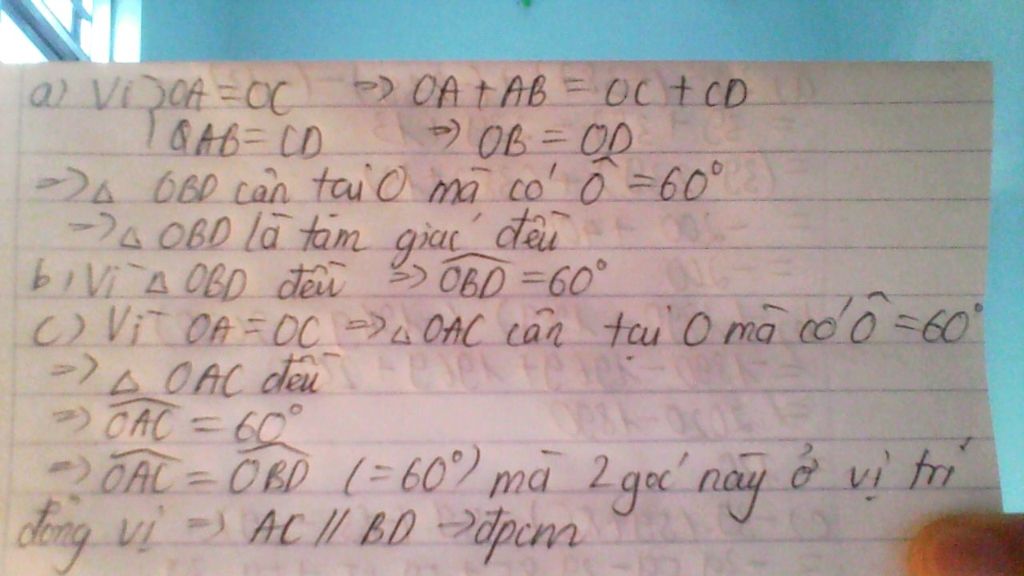 a) Vì OA = OC => OA + AB = OC + CD
& AB = CD => OB = OD
=> △ OBD cân tại O mà có Ô = 60°
=> △ OBD là tam giác đều
b, Vì △ OBD đều => \widehat{OBD} = 60°
c) Vì OA = OC => △ OAC cân tại O mà có Ô = 60°
=> △ OAC đều
=> \widehat{OAC} = 60°
=> \widehat{OAC} = \widehat{OBD} (= 60°) mà 2 góc này ở vị trí
đồng vị => AC // BD → đpcm